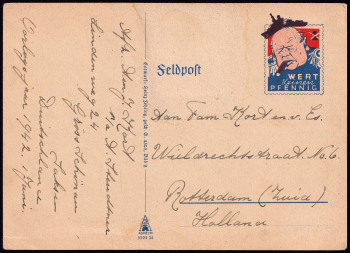 Feldpost
WERT
Keinen
PFENNIG
Aan Fam. Kort en v. Es.
Wieldrechtstraat No. 6.
Rotterdam (Zuid)
Holland
Afz. Aug. J. Kort
Lindenweg 24
Gross Schönau
Sachsen
Deutschland
Oorlogsjaar 1942. Juni.